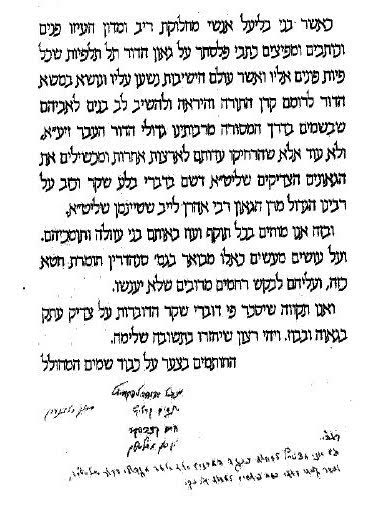 כאשר בני בליעל אנשי מחלוקת ריב ומדון העיזו פנים
וכותבים ומפיצים כתבי פלסתר על גאון הדור תל תלפיות שכל
פיות פונים אליו ואשר עולם הישיבות נשען עליו ונושא במשא
הדור לרומם קרן התורה והיראה ולהשיב לב בנים לאביהם
שבשמים בדרך המסורה מרבותינו גדולי הדור העבר זיע״א,
ולא עוד אלא שהרחיקו עדותם לארצות אחרות ומכשילים את
הגאונים הצדיקים שליט״א דשם בדברי בלע שקר וכזב על
רבינו הגדול מרן הגאון רבי אהרן לייב שטיינמן שליט״א.
ובזה אנו מוחים בכל תוקף ועוז באותם בני עוולה ותומכיהם.
ועל עושים מעשים כאלו מבואר בגמ׳ סנהדרין חומרת חטא
כזה, ועליהם לבקש רחמים מרובים שלא יענשו.
ואנו תקווה שיסכר פי דוברי שקר הדוברות על צדיק עתק
בגאוה ובבוז. ויהי רצון שיחזרו בתשובה שלימה.
החותמים בצער על כבוד שמים המחולל